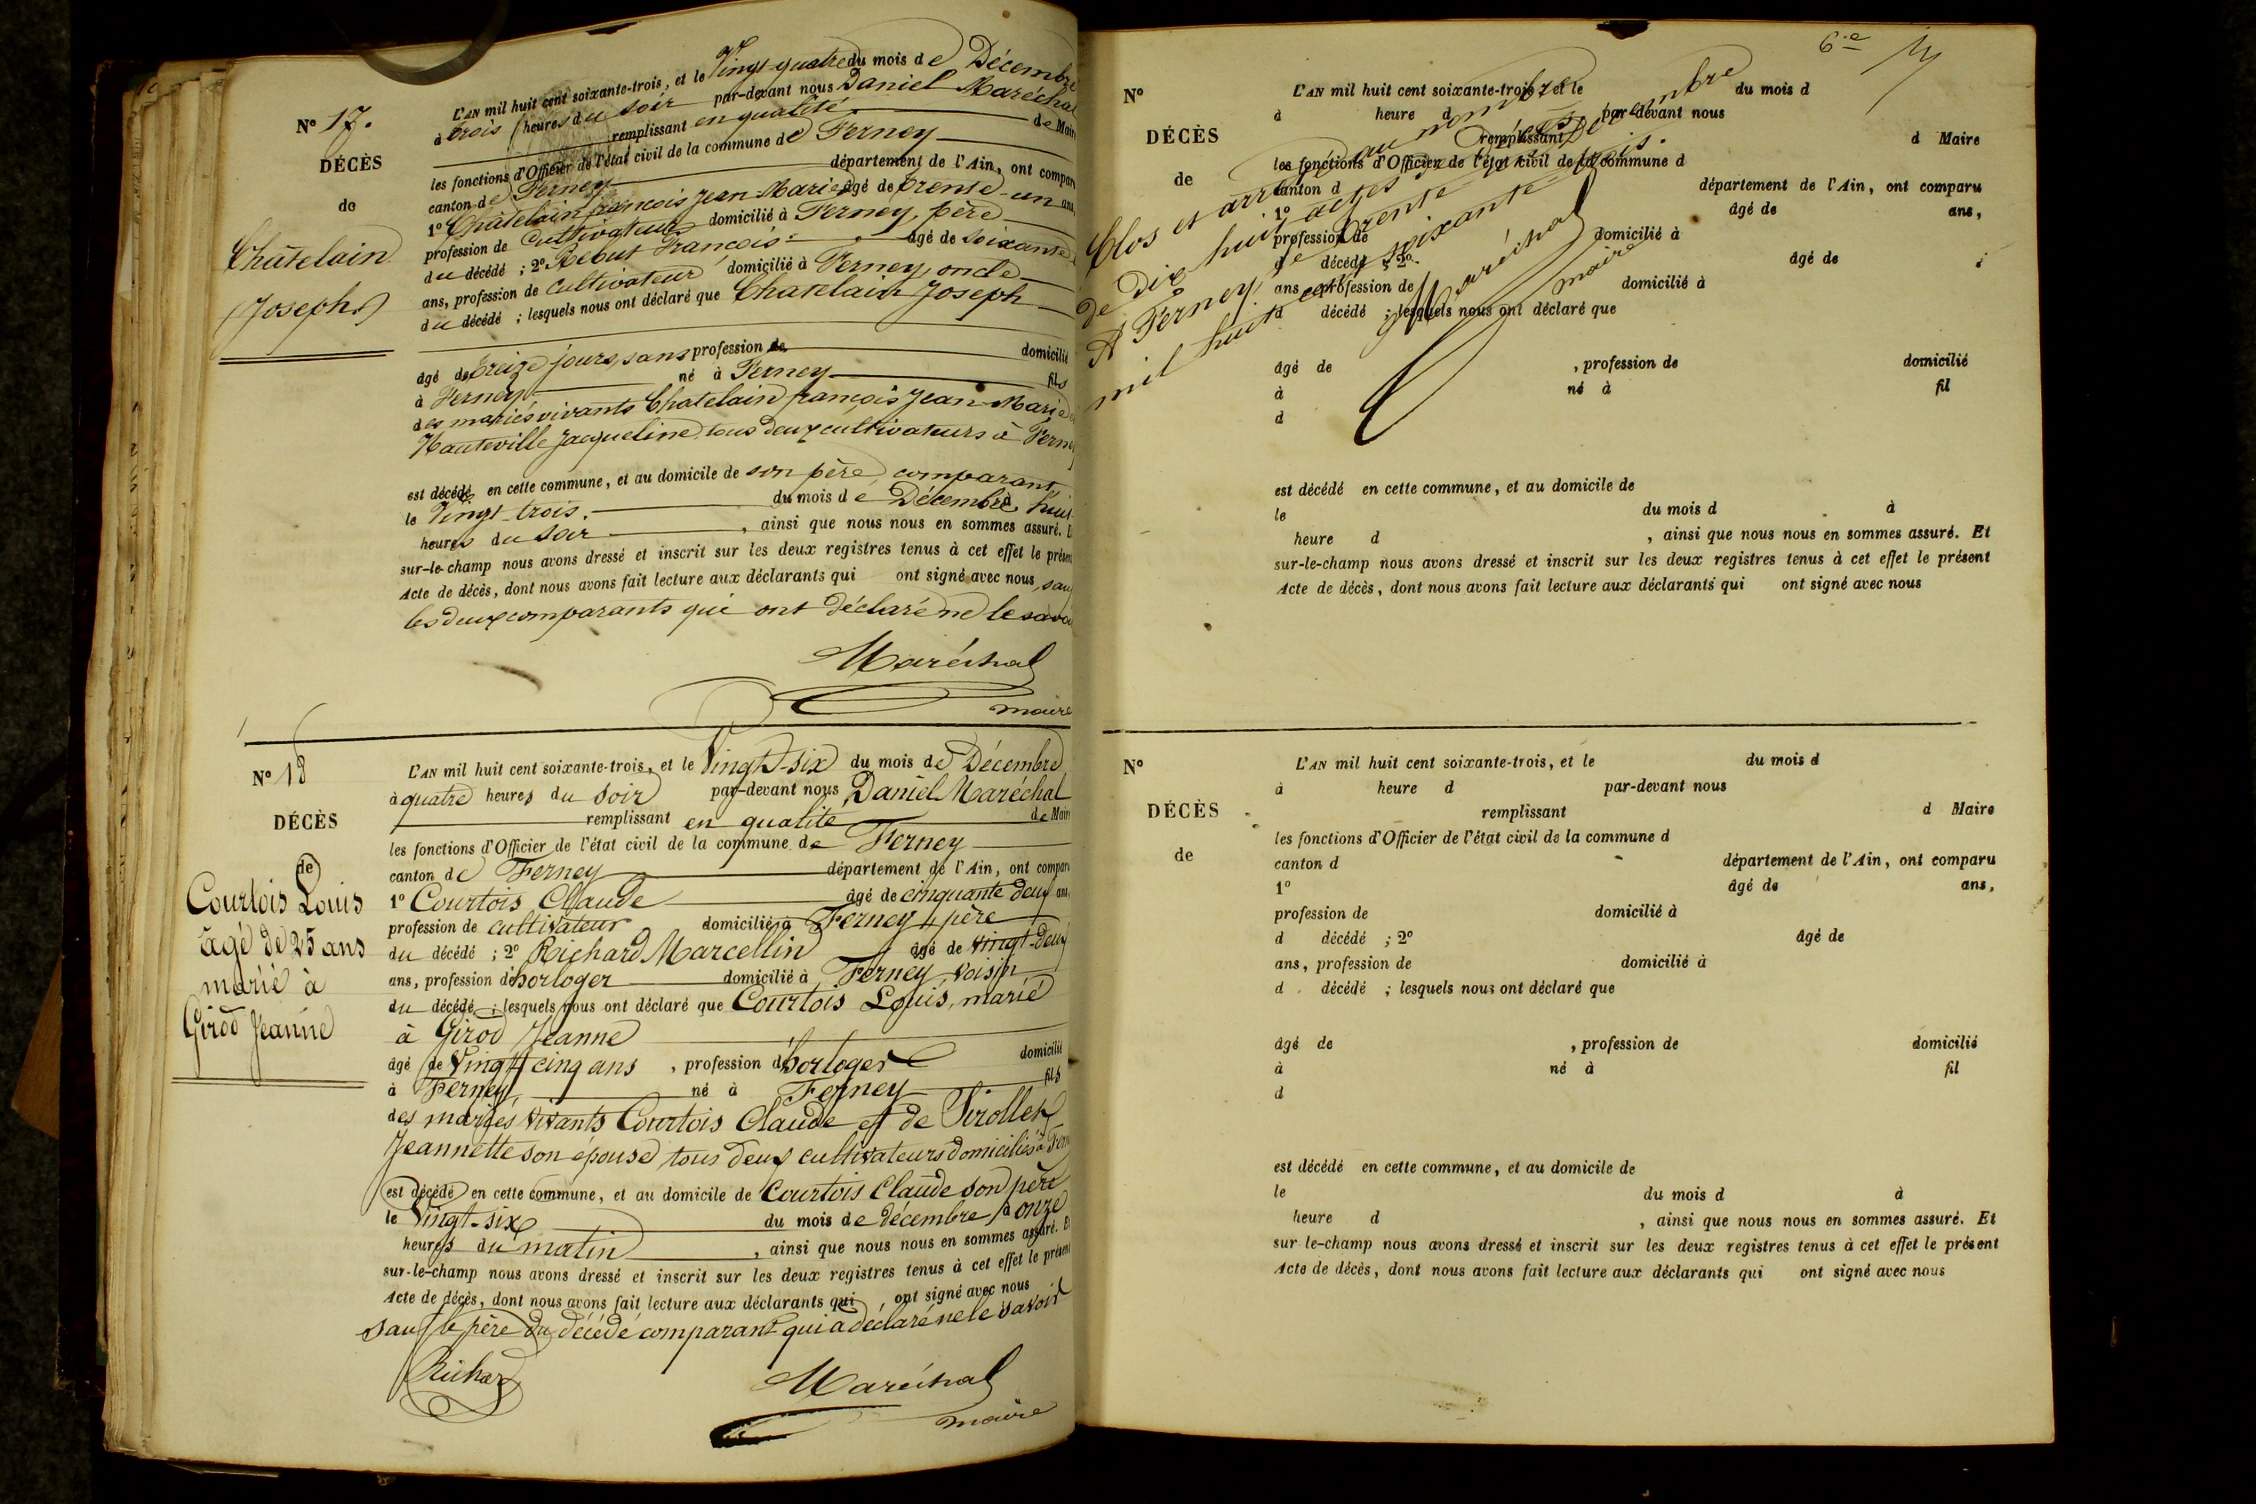 N° 17.
DÉCÈS
de
Châtelain
(Joseph)
L'AN mil huit cent soixante-trois, et le Vingt-quatre du mois de Décembre
à trois heures du soir par-devant nous Daniel Maréchal
remplissant en qualité de Maire
les fonctions d'Officier de l'état civil de la commune de Ferney
canton de Ferney département de l'Ain, ont comparu
1° Châtelain françois Jean-Marie âgé de trente-un ans,
profession de Cultivateur domicilié à Ferney, père
du décédé ; 2° Rebut François âgé de soixante
ans, profession de cultivateur domicilié à Ferney, oncle
du décédé ; lesquels nous ont déclaré que Chatelain Joseph
âgé de treize jours, sans profession de domicilié
à Ferney né à Ferney fils
des mariés vivants Chatelain françois Jean-Marie
Hauteville Jacqueline, tous deux cultivateurs à Ferney
est décédé en cette commune, et au domicile de son père, comparant,
le Vingt-trois. du mois de Décembre à huit
heures du soir , ainsi que nous nous en sommes assuré. Et
sur-le-champ nous avons dressé et inscrit sur les deux registres tenus à cet effet le présent
Acte de décès, dont nous avons fait lecture aux déclarants qui ont signé avec nous, sauf
les deux comparants qui ont déclaré ne le savoir
Maréchal
maire
N° 18
DÉCÈS
de
Courtois Louis
âgé de 25 ans
marié à
Girod Jeanne
L'AN mil huit cent soixante-trois, et le Vingt-six du mois de Décembre
à quatre heures du soir par-devant nous Daniel Maréchal
remplissant en qualité de Maire
les fonctions d'Officier de l'état civil de la commune de Ferney
canton de Ferney département de l'Ain, ont comparu
1° Courtois Claude âgé de cinquante deux ans
profession de cultivateur domicilié à Ferney, père
du décédé ; 2° Richard Marcellin âgé de vingt-deux
ans, profession d'horloger domicilié à Ferney, voisin
du décédé ; lesquels nous ont déclaré que Courtois Louis, marié
à Girod Jeanne
âgé de Vingt cinq ans , profession d'horloger domicilié
à Ferney, né à Ferney fils
des mariés vivants Courtois Claude et de
Jeannette son épouse tous deux cultivateurs domiciliés à Ferney
est décédé en cette commune, et au domicile de Courtois Claude son père
le Vingt-six du mois de décembre à onze
heures du matin , ainsi que nous nous en sommes assuré. Et
sur-le-champ nous avons dressé et inscrit sur les deux registres tenus à cet effet le présent
Acte de décès, dont nous avons fait lecture aux déclarants qui ont signé avec nous
sauf le père du décédé comparant qui a déclaré ne le savoir
Richard
Maréchal
maire
6.e
N°
DÉCÈS
de
L'AN mil huit cent soixante-trois, et le du mois d
à heure d par-devant nous
remplissant d Maire
les fonctions d'Officier de l'état civil de la commune d
canton d département de l'Ain, ont comparu
1° âgé de ans,
profession de domicilié à
d décédé ; 2° âgé de
ans, profession de domicilié à
d décédé ; lesquels nous ont déclaré que
âgé de , profession de domicilié
à né à fil
d
est décédé en cette commune, et au domicile de
le du mois d à
heure d , ainsi que nous nous en sommes assuré. Et
sur-le-champ nous avons dressé et inscrit sur les deux registres tenus à cet effet le présent
Acte de décès, dont nous avons fait lecture aux déclarants qui ont signé avec nous
Clos et arrêté au nombre
de Dix huit actes de décès
A Ferney, le trente décembre
mil huit cent soixante trois.
Maréchal
maire
N°
DÉCÈS
de
L'AN mil huit cent soixante-trois, et le du mois d
à heure d par-devant nous
remplissant d Maire
les fonctions d'Officier de l'état civil de la commune d
canton d département de l'Ain, ont comparu
1° âgé de ans,
profession de domicilié à
d décédé ; 2° âgé de
ans, profession de domicilié à
d décédé ; lesquels nous ont déclaré que
âgé de , profession de domicilié
à né à fil
d
est décédé en cette commune, et au domicile de
le du mois d à
heure d , ainsi que nous nous en sommes assuré. Et
sur le-champ nous avons dressé et inscrit sur les deux registres tenus à cet effet le présent
Acte de décès, dont nous avons fait lecture aux déclarants qui ont signé avec nous